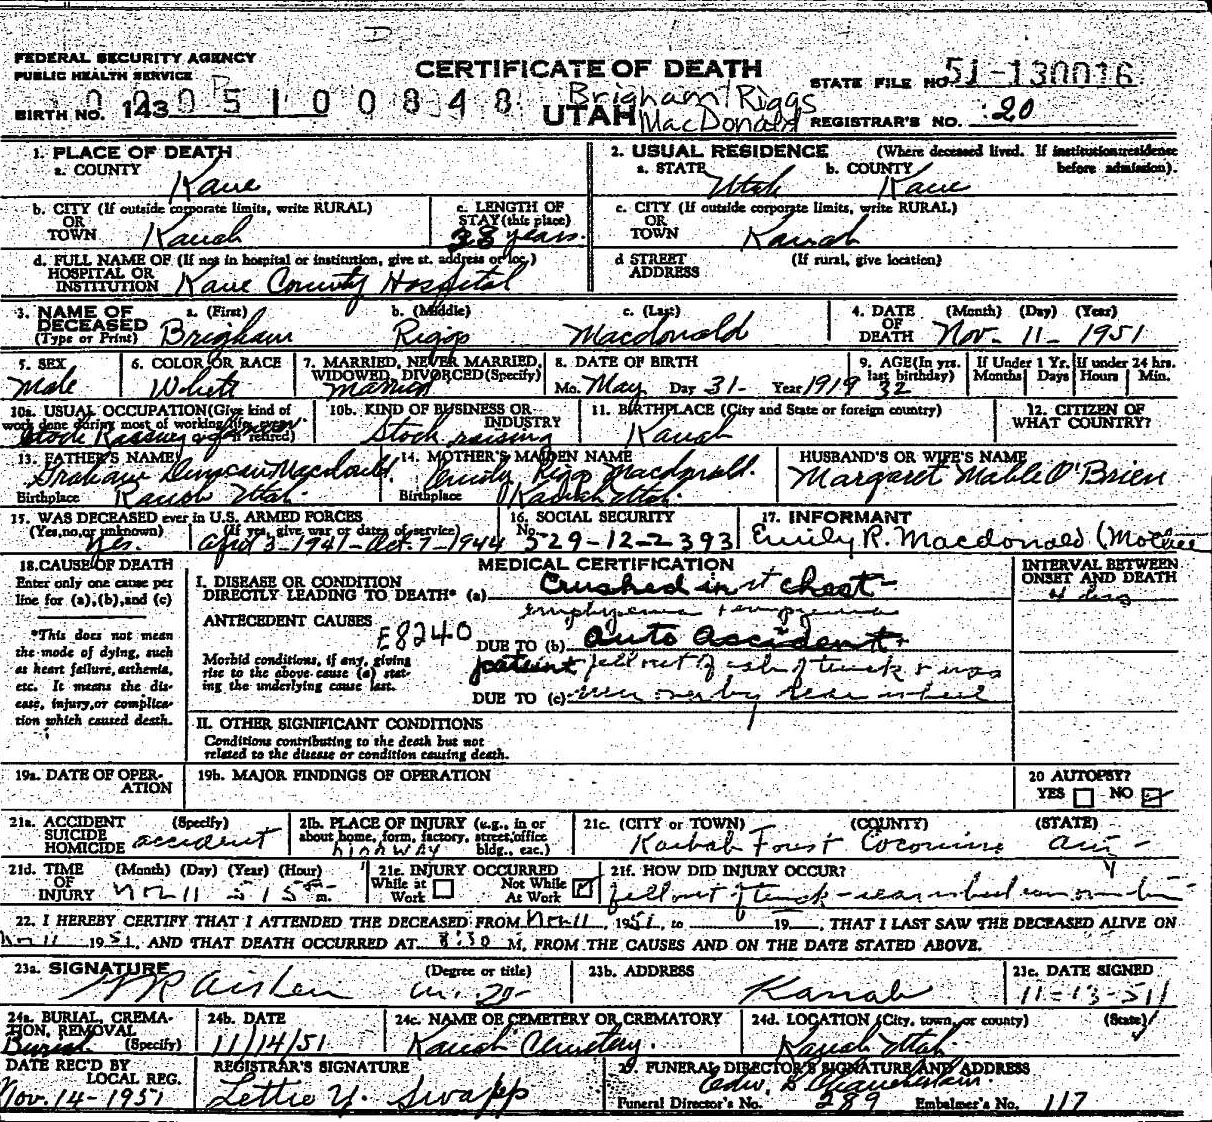 FEDERAL SECURITY AGENCY
PUBLIC HEALTH SERVICE
CERTIFICATE OF DEATH
STATE FILE NO. 51-130016
BIRTH NO. 143
0005100848
UTAH
Brigham Riggs
MacDonald
REGISTRAR'S NO. 20
1. PLACE OF DEATH
a. COUNTY Kane
2. USUAL RESIDENCE (Where deceased lived. If institution: residence before admission).
a. STATE Utah b. COUNTY Kane
b. CITY (If outside corporate limits, write RURAL)
OR
TOWN Kanab
c. LENGTH OF
STAY (this place)
38 years.
c. CITY (If outside corporate limits, write RURAL)
OR
TOWN Kanab
d. FULL NAME OF (If not in hospital or institution, give st. address or loc.)
HOSPITAL OR
INSTITUTION Kane County Hospital
d STREET (If rural, give location)
ADDRESS
3. NAME OF
DECEASED
(Type or Print)
a. (First) Brigham
b. (Middle) Riggs
c. (Last) Macdonald
4. DATE (Month) (Day) (Year)
OF
DEATH Nov. 11 - 1951
5. SEX
Male
6. COLOR OR RACE
White
7. MARRIED, NEVER MARRIED,
WIDOWED, DIVORCED (Specify)
Married
8. DATE OF BIRTH
Mo. May Day 31- Year 1919
9. AGE (In yrs.
last birthday)
32
If Under 1 Yr.
Months Days
If under 24 hrs.
Hours Min.
10a. USUAL OCCUPATION (Give kind of
work done during most of working life, even
if retired)
10b. KIND OF BUSINESS OR
INDUSTRY
Stock raising
11. BIRTHPLACE (City and State or foreign country)
Kanab
12. CITIZEN OF
WHAT COUNTRY?
13. FATHER'S NAME
Graham Duncan Macdonald.
Birthplace Kanab Utah.
14. MOTHER'S MAIDEN NAME
Emily Riggs Macdonald.
Birthplace Kanab Utah.
HUSBAND'S OR WIFE'S NAME
Margaret Mable O'Brien
15. WAS DECEASED ever in U.S. ARMED FORCES
(Yes, no, or unknown) (If yes, give war or dates of service)
Yes. April 3-1941-Oct. 7-1944
16. SOCIAL SECURITY
No. 529-12-2393
17. INFORMANT
Emily R. Macdonald (Mother
18. CAUSE OF DEATH
Enter only one cause per
line for (a), (b), and (c)
*This does not mean
the mode of dying, such
as heart failure, asthenia,
etc. It means the dis-
ease, injury, or complica-
tion which caused death.
MEDICAL CERTIFICATION
I. DISEASE OR CONDITION
DIRECTLY LEADING TO DEATH* (a) Crushed in rt chest -
ANTECEDENT CAUSES
E8240
DUE TO (b) auto accident -
Morbid conditions, if any, giving
rise to the above cause (a) stat-
ing the underlying cause last.
patient fell out of truck & was
DUE TO (c) run over by rear wheel
INTERVAL BETWEEN
ONSET AND DEATH
II. OTHER SIGNIFICANT CONDITIONS
Conditions contributing to the death but not
related to the disease or condition causing death.
19a. DATE OF OPER-
ATION
19b. MAJOR FINDINGS OF OPERATION
20 AUTOPSY?
YES NO
21a. ACCIDENT (Specify)
SUICIDE
HOMICIDE accident
21b. PLACE OF INJURY (e.g., in or
about home, farm, factory, street, office
bldg., etc.)
highway
21c. (CITY or TOWN) (COUNTY) (STATE)
Kaibab Forest Coconino Ariz -
21d. TIME (Month) (Day) (Year) (Hour)
OF
INJURY Nov 11 5 15 m.
21e. INJURY OCCURRED
While at Work Not While At Work
21f. HOW DID INJURY OCCUR?
fell out of truck - rear wheel ran over him
22. I HEREBY CERTIFY THAT I ATTENDED THE DECEASED FROM Nov 11, 1951, to 19 , THAT I LAST SAW THE DECEASED ALIVE ON
Nov 11 1951, AND THAT DEATH OCCURRED AT 8:30 M, FROM THE CAUSES AND ON THE DATE STATED ABOVE.
23a. SIGNATURE (Degree or title)
Aiken m. D-
23b. ADDRESS
Kanab
23c. DATE SIGNED
11-13-51
24a. BURIAL, CREMA-
TION, REMOVAL
Burial (Specify)
24b. DATE
11/14/51
24c. NAME OF CEMETERY OR CREMATORY
Kanab Cemetery.
24d. LOCATION (City, town, or county) (State)
Kanab Utah.
DATE REC'D BY
LOCAL REG.
Nov. 14-1951
REGISTRAR'S SIGNATURE
Lettie Y. Swapp
25. FUNERAL DIRECTOR'S SIGNATURE AND ADDRESS
Funeral Director's No. 289 Embalmer's No. 117